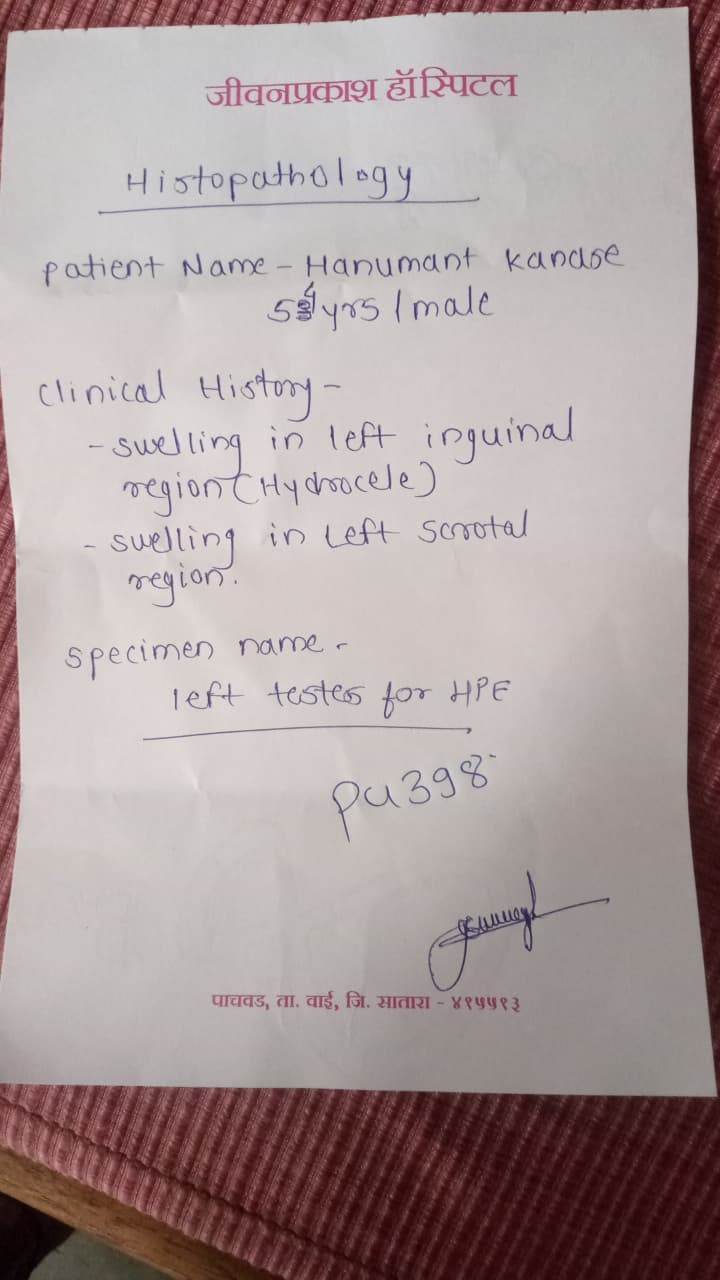 जीवनप्रकाश हॉस्पिटल
Histopathology
patient Name - Hanumant kanase
54 yrs / male
clinical History -
- swelling in left inguinal
region (Hydrocele)
- swelling in Left scrotal
region.
specimen name -
left testes for HPE
pu398
पाचवड, ता. वाई, जि. सातारा - ४१५५१३